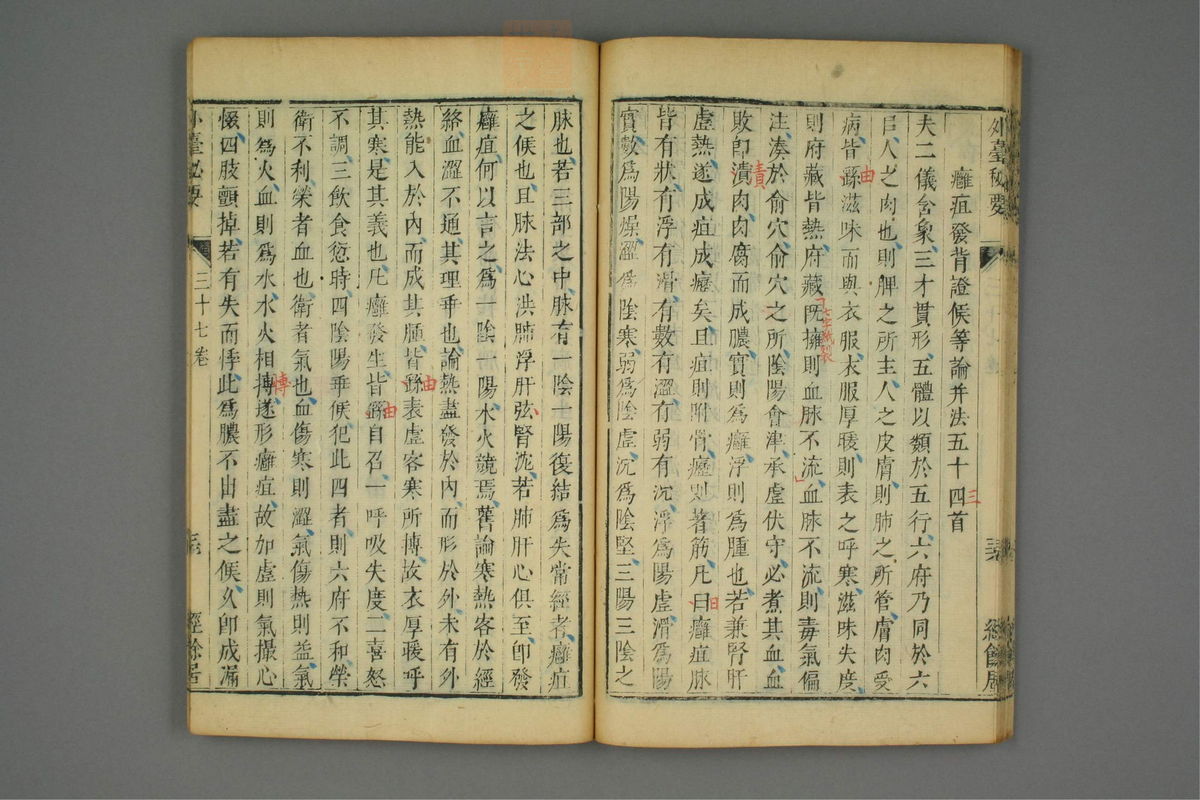 外臺秘要
癰疽發背證候等論并法五十四首
三
夫二儀含象三才貫形五體以類於五行六府乃同於六
臣人之肉也則脾之所主人之皮膚則肺之所管膚肉受
病皆繇滋味而與衣服衣服厚暖則表之呼寒滋味失度
由
則府藏皆熱府藏既擁則血脉不流血脉不流則毒氣偏
注湊於俞穴俞穴之所陰陽會津承虛伏守必煮其血血
敗即潰肉肉腐而成膿實則為癰浮則為腫也若兼腎肝
虛熱遂成疽成癧矣且疽則附骨癧則著筋凡曰癰疽脉
皆有狀有浮有滑有數有澀有弱有沉浮為陽虛滑為陽
實數為陽燥澀為陰寒弱為陰虛沉為陰堅三陽三陰之
脉也若三部之中脉有一陰一陽復結為失常經者癰疽
之候也且脉法心洪肺浮肝弦腎沈若肺肝心俱至即發
癰疽何以言之為一陰一陽水火競焉舊論寒熱客於經
絡血澀不通其理乖也論熱盡發於內而形於外未有外
熱能入於內而成其腫皆繇表虛客寒所摶故衣厚暖呼
由
其寒是其義也凡癰發生皆繇自召一呼吸失度二喜怒
由
不調三飲食愆時四陰陽乖候犯此四者則六府不和榮
衛不利榮者血也衛者氣也血傷寒則澀氣傷熱則益氣
則為火血則為水水火相摶遂形癰疽故如虛則氣撮心
惙四肢顫掉若有失而悸此為膿不出盡之候久即成漏
外臺秘要
三十七卷
經餘居